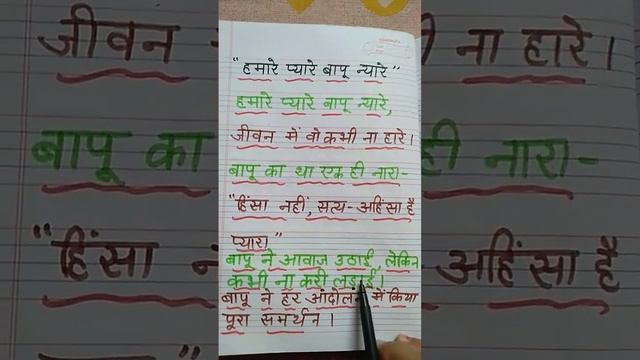 "हमारे प्यारे बापू न्यारे"
हमारे प्यारे बापू न्यारे,
जीवन में वो कभी ना हारे।
बापू का था एक ही नारा-
"हिंसा नहीं, सत्य-अहिंसा है
प्यारा"
बापू ने आवाज उठाई, लेकिन
कभी ना करी लड़ाई।
बापू ने हर आंदोलन में किया
पूरा समर्थन।